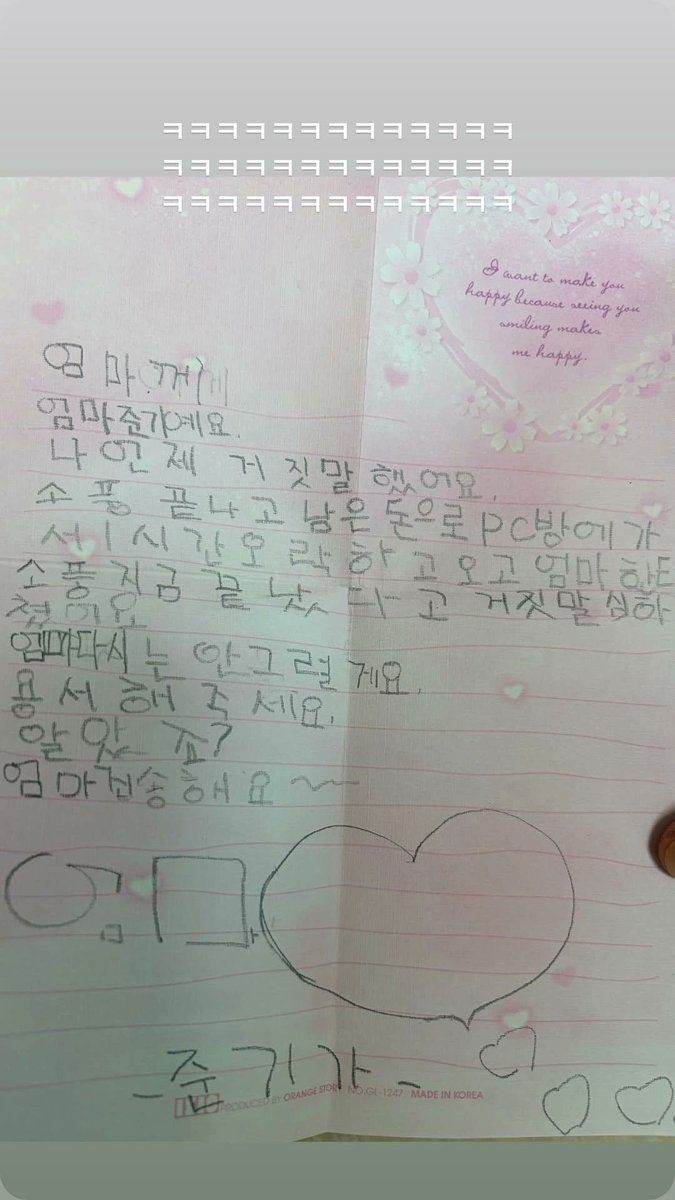 ㅋㅋㅋㅋㅋㅋㅋㅋㅋㅋㅋㅋㅋ
ㅋㅋㅋㅋㅋㅋㅋㅋㅋㅋㅋㅋㅋ
ㅋㅋㅋㅋㅋㅋㅋㅋㅋㅋㅋㅋㅋ
I want to make you
happy because seeing you
smiling makes
me happy.
엄마께
엄마준기예요.
나 언제 거짓말했어요.
소풍 끝나고 남은 돈으로 PC방에가
서 1시간오락하고오고 엄마한테
소풍지금 끝낫다고 거짓말
쳤어요
엄마다시는 안그럴게요.
용서해주세요.
알았죠?
엄마 해요~~
엄마
-준기가-
PRODUCED BY ORANGE STORY NO.GL-1247 MADE IN KOREA